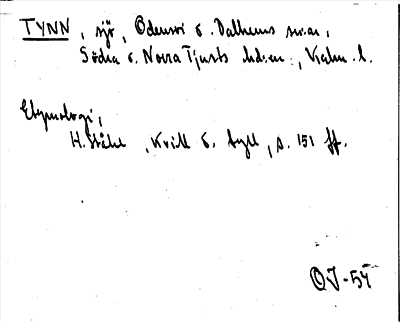 TYNN, sjö, Odensvi o. Dalhems snar,
Södra o. Norra Tjusts hd:en., Kalm. l.
Etymologi;
H. Ståhl, Kvill o. tyll, s. 151 ff.
OJ-54